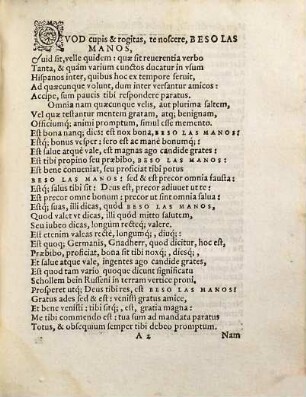 QVOD cupis & rogitas, te noscere, BESO LAS
MANOS,
Quid sit, velle quidem: quæ sit reuerentia verbo
Tanta, & quàm varium cunctos ducatur in vsum
Hispanos inter, quibus hoc ex tempore seruit,
Ad quæcunque volunt, dum inter versantur amicos:
Accipe, sum paucis tibi respondere paratus.
Omnia nam quæcunque velis, aut plurima saltem,
Vel quæ testantur mentem gratam, atq; benignam,
Officiumq; animi promptum, simul esse memento.
Est bona nanq; dies: est nox bona, BESO LAS MANOS:
Estq; bonus vesper: sero est ac mane bonumq;:
Est salue atque vale, est magnas ago candide grates:
Est tibi propino seu præbibo, BESO LAS MANOS:
Est bene conueniat, seu proficiat tibi potus
BESO LAS MANOS: sed & est precor omnia fausta:
Estq; salus tibi sit: Deus est, precor adiuuet vt te:
Est precor omne bonum: precor ut sint omnia salua:
Estq; suas, illi dicas, quòd BESO LAS MANOS,
Quod valet vt dicas, illi quòd mitto salutem,
Seu iubeo dicas, longùm rectèq; valere.
Est etenim valeas rectè, longumq;, diuq;:
Est quoq; Germanis, Gnadherr, quod dicitur, hoc est,
Præbibo, proficiat, bona sit tibi noxq;, diesq;,
Et salue atque vale, ingentes ago candide grates,
Est quod tam vario quoque dicunt significatu
Schollem bein Russeni in terram vertice proni,
Prosperet utq; Deus tibi res, est BESO LAS MANOS:
Gratus ades sed & est: venisti gratus amice,
Et bene venisti: tibi sitq;, est, gratia magna:
Me tibi commendo est: tua sum ad mandata paratus
Totus, & obsequium semper tibi debeo promptum.
A 2 Nam